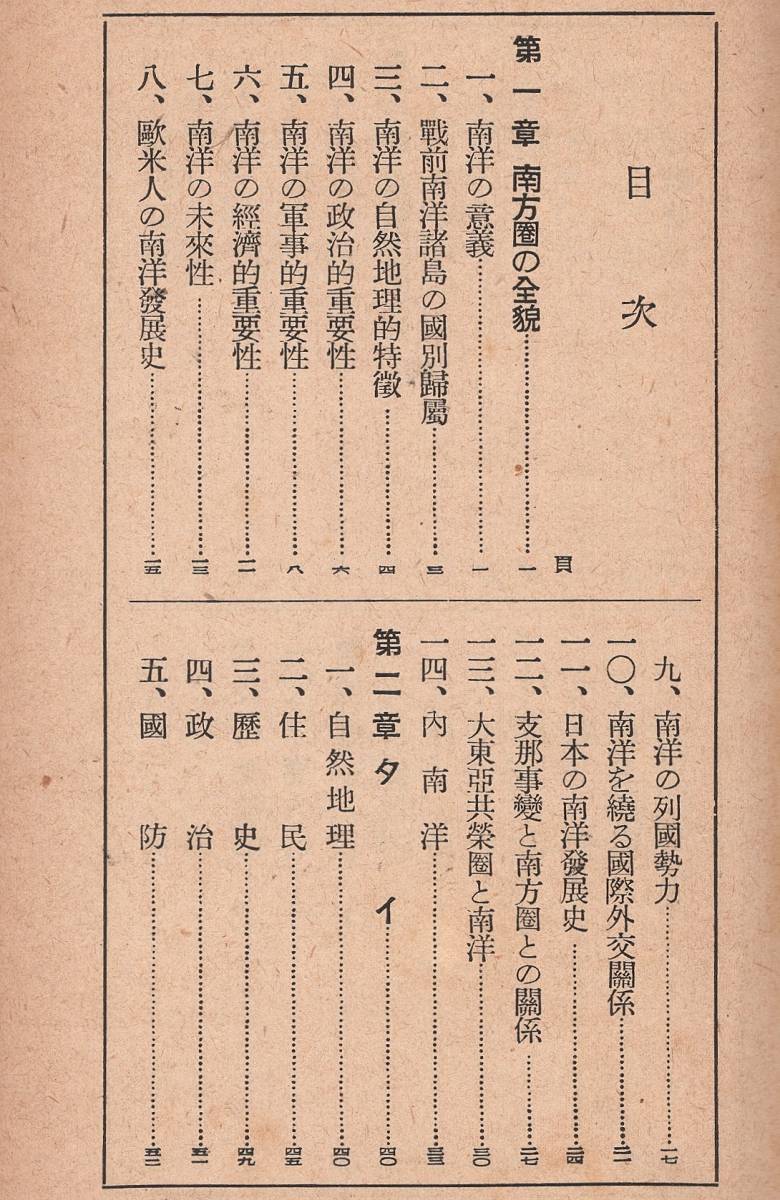 目次
頁
第一章 南方圈の全貌……一
一、南洋の意義……一
二、戰前南洋諸島の國別歸屬……三
三、南洋の自然地理的特徵……四
四、南洋の政治的重要性……六
五、南洋の軍事的重要性……八
六、南洋の經濟的重要性……一一
七、南洋の未來性……一三
八、歐米人の南洋發展史……一五
九、南洋の列國勢力……一七
一〇、南洋を繞る國際外交關係……二一
一一、日本の南洋發展史……二四
一二、支那事變と南方圈との關係……二七
一三、大東亞共榮圈と南洋……三〇
一四、內南洋……三三
第二章 タイ……四〇
一、自然地理……四〇
二、住民……四五
三、歷史……四九
四、政治……五一
五、國防……五二